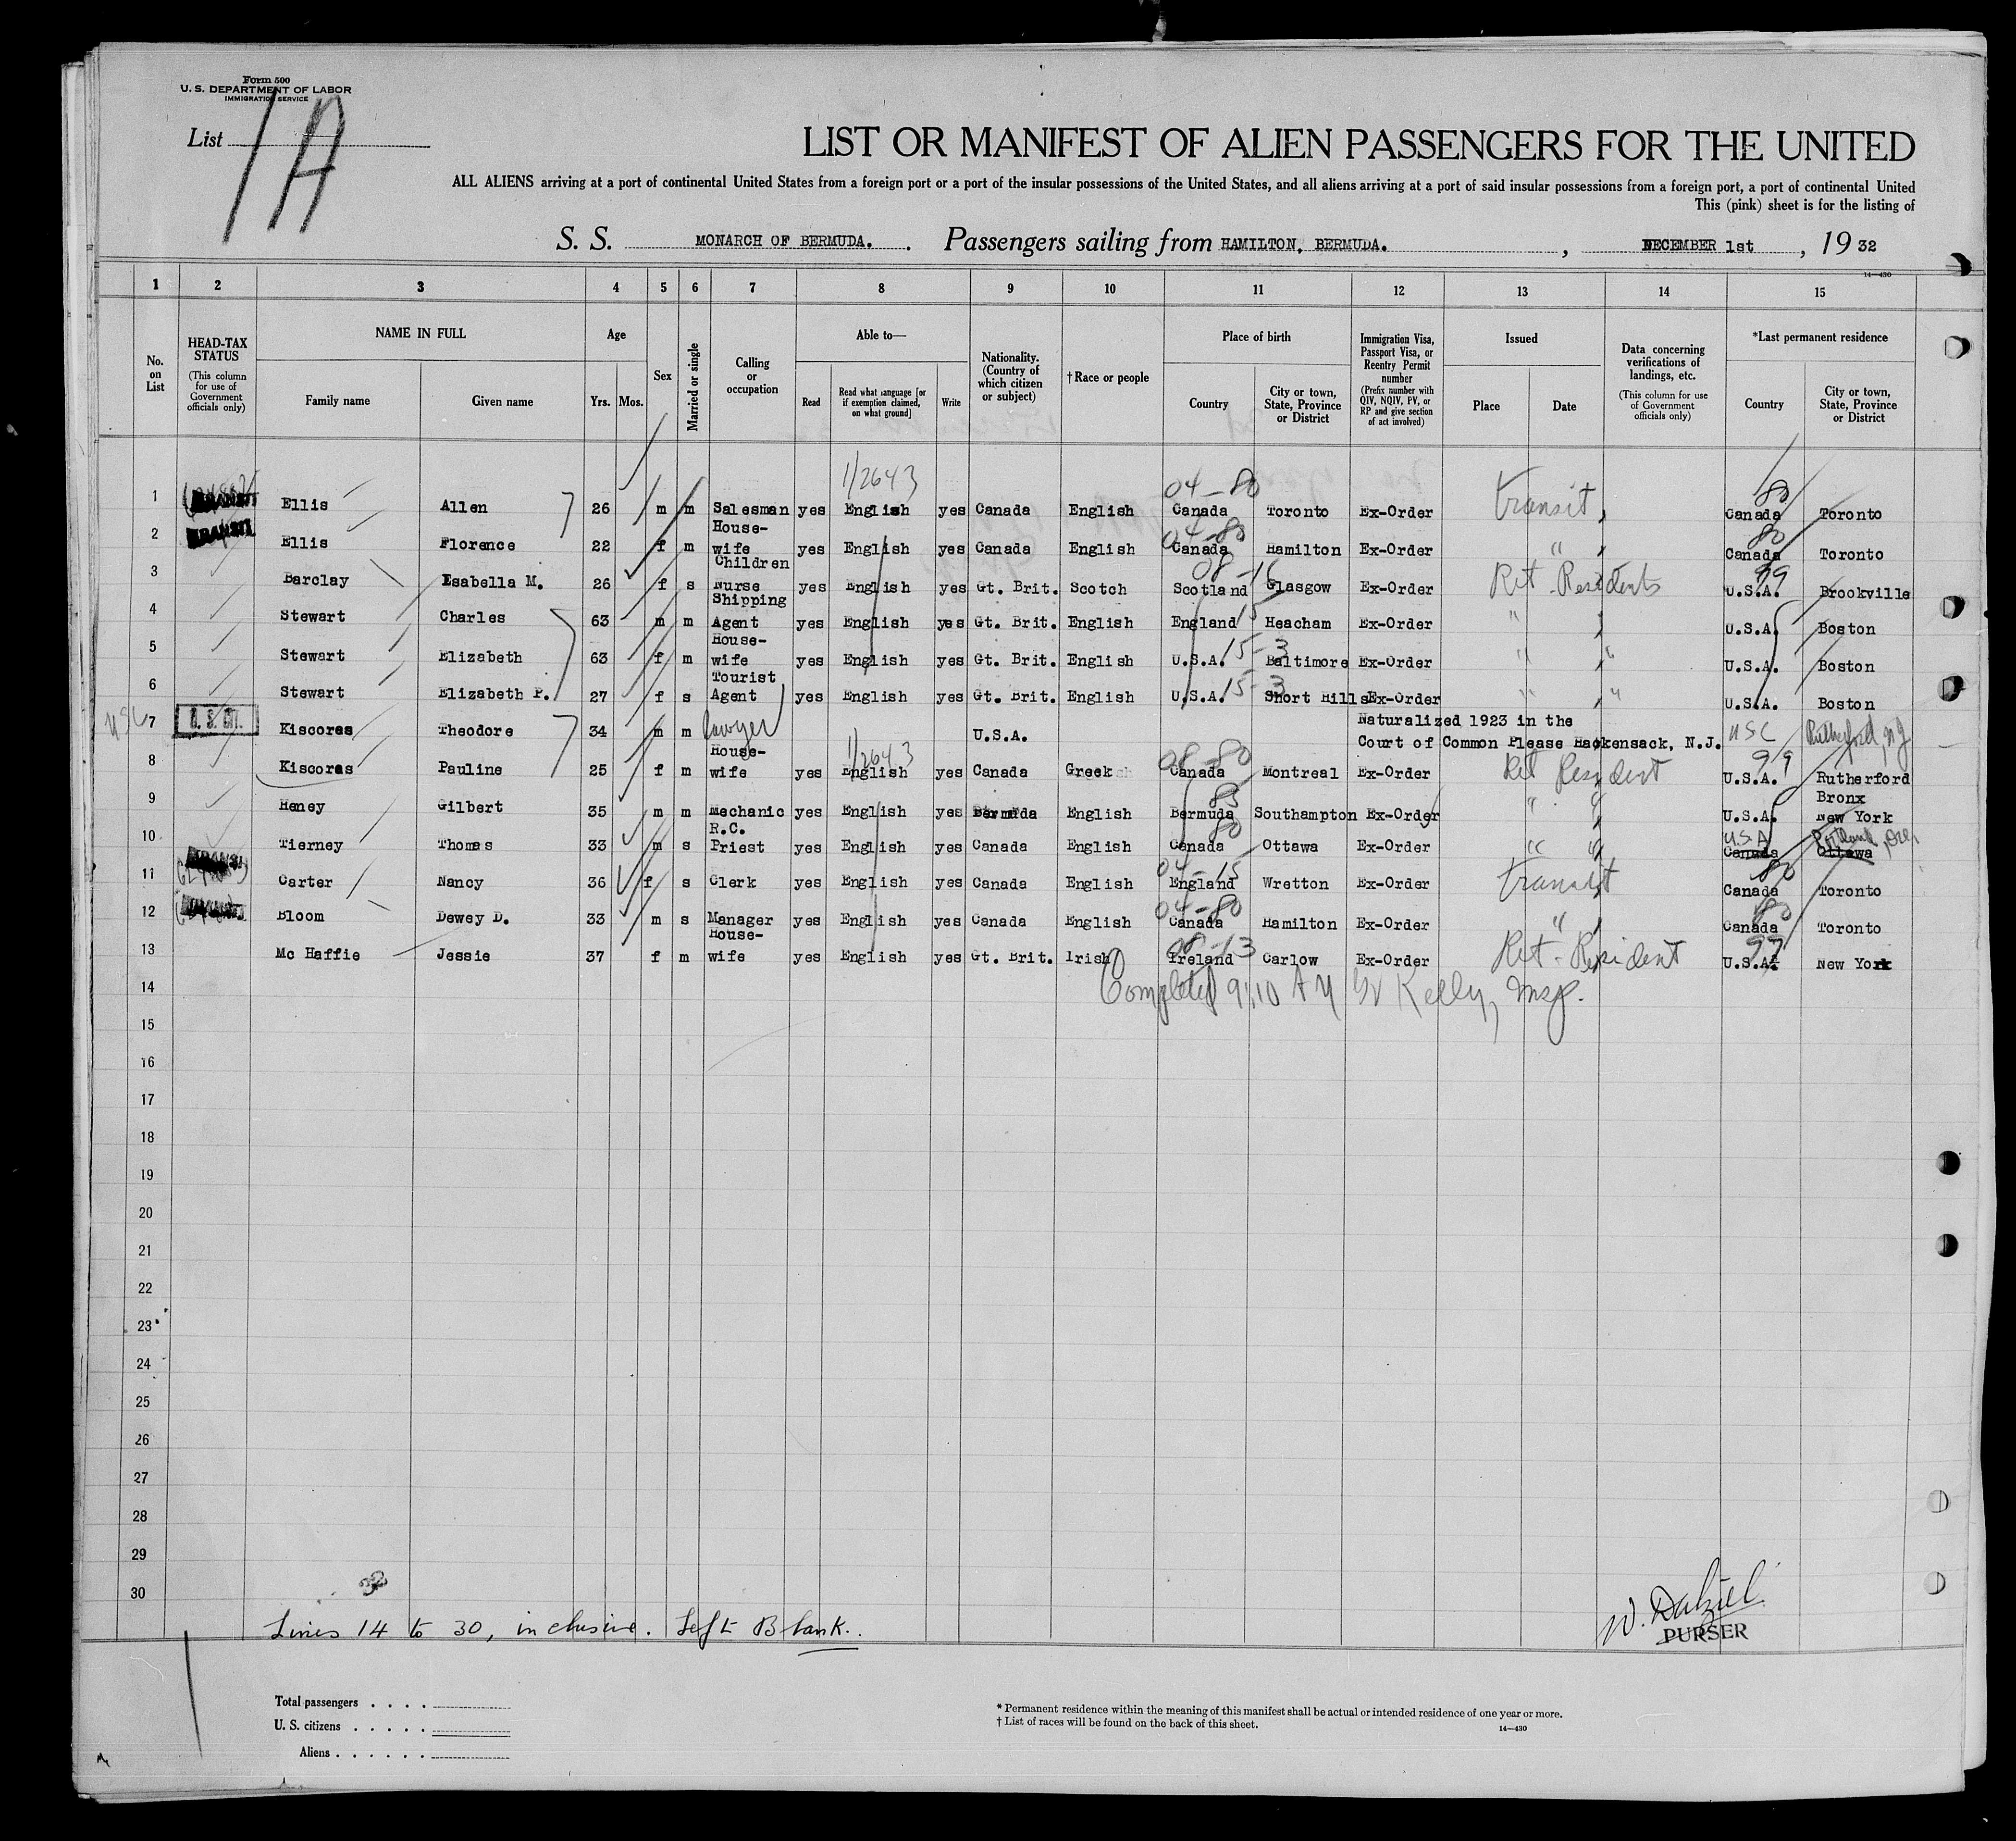 Form 500
U. S. DEPARTMENT OF LABOR
IMMIGRATION SERVICE
List 1A
LIST OR MANIFEST OF ALIEN PASSENGERS FOR THE UNITED
ALL ALIENS arriving at a port of continental United States from a foreign port or a port of the insular possessions of the United States, and all aliens arriving at a port of said insular possessions from a foreign port, a port of continental United
This (pink) sheet is for the listing of
S. S. MONARCH OF BERMUDA. Passengers sailing from HAMILTON, BERMUDA. , DECEMBER 1st , 19 32
14—430
1 2 3 4 5 6 7 8 9 10 11 12 13 14 15
No. on List
HEAD-TAX STATUS (This column for use of Government officials only)
NAME IN FULL Family name Given name
Age Yrs. Mos.
Sex
Married or single
Calling or occupation
Able to— Read Read what language [or if exemption claimed, on what ground] Write
Nationality. (Country of which citizen or subject)
†Race or people
Place of birth Country City or town, State, Province or District
Immigration Visa, Passport Visa, or Reentry Permit number (Prefix number with QIV, NQIV, PV, or RP and give section of act involved)
Issued Place Date
Data concerning verifications of landings, etc. (This column for use of Government officials only)
*Last permanent residence Country City or town, State, Province or District
1/2643 04-80 80
1 TRANSIT Ellis Allen 26 m m Salesman yes English yes Canada English Canada Toronto Ex-Order transit Canada Toronto
04-80 80
2 TRANSIT Ellis Florence 22 f m House-wife yes English yes Canada English Canada Hamilton Ex-Order " Canada Toronto
08-16 99
3 Barclay Isabella M. 26 f s Children Nurse yes English yes Gt. Brit. Scotch Scotland Glasgow Ex-Order Ret-Residents U.S.A. Brookville
4 Stewart Charles 63 m m Shipping Agent yes English yes Gt. Brit. English England 15 Heacham Ex-Order " U.S.A. Boston
5 Stewart Elizabeth 63 f m House-wife yes English yes Gt. Brit. English U.S.A. 15-3 Baltimore Ex-Order " " U.S.A. Boston
6 Stewart Elizabeth P. 27 f s Tourist Agent yes English yes Gt. Brit. English U.S.A. 15-3 Short Hills Ex-Order " " U.S.A. Boston
USC 7 U. S. CIT. Kiscoras Theodore 34 m m lawyer U.S.A. Naturalized 1923 in the Court of Common Please Hackensack, N.J. USC Rutherford, NJ
1/2643 08-80 99
8 Kiscoras Pauline 25 f m House-wife yes English yes Canada Greek Canada Montreal Ex-Order Ret Resident U.S.A. Rutherford
83
9 Heney Gilbert 35 m m Mechanic yes English yes Bermuda English Bermuda Southampton Ex-Order " " U.S.A. Bronx New York
80
10 Tierney Thomas 33 m s R.C. Priest yes English yes Canada English Canada Ottawa Ex-Order " " U.S.A Canada Ottawa Portland, Ore,
04-15 80
11 Carter Nancy 36 f s Clerk yes English yes Canada English England Wretton Ex-Order transit Canada Toronto
04-80 80
12 Bloom Dewey D. 33 m s Manager yes English yes Canada English Canada Hamilton Ex-Order " Canada Toronto
08-13
13 Mc Haffie Jessie 37 f m House-wife yes English yes Gt. Brit. Irish Ireland Carlow Ex-Order Ret-Resident U.S.A. New York
14 Completed 9:10 AM W Kelly, Insp.
15
16
17
18
19
20
21
22
23
24
25
26
27
28
29
30
Lines 14 to 30, inclusive. Left Blank.
W. Dalziel
PURSER
Total passengers
U. S. citizens
Aliens
* Permanent residence within the meaning of this manifest shall be actual or intended residence of one year or more.
† List of races will be found on the back of this sheet.
14—430